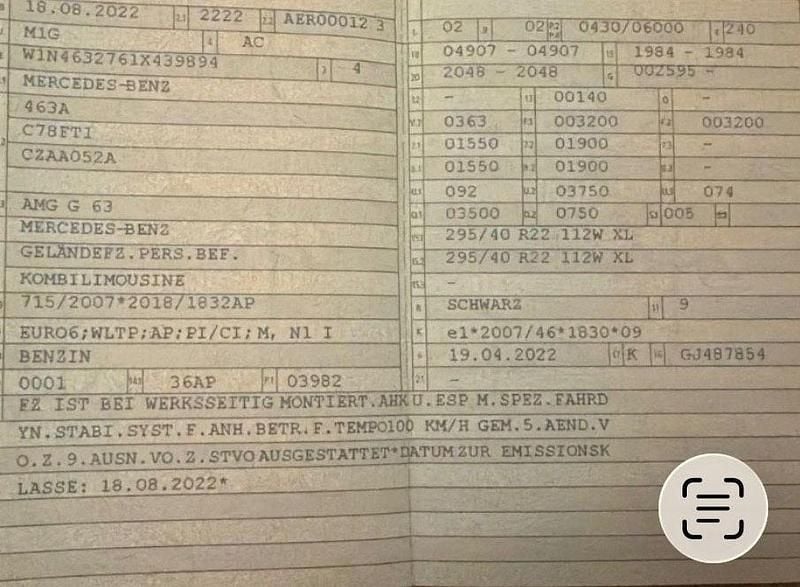 18.08.2022 2222 AER00012 3
M1G AC
W1N4632761X439894 4
MERCEDES-BENZ
463A
C78FTI
CZAA052A
AMG G 63
MERCEDES-BENZ
GELÄNDEFZ.PERS.BEF.
KOMBILIMOUSINE
715/2007*2018/1832AP
EURO6;WLTP;AP;PI/CI; M, N1 I
BENZIN
0001 14.1 36AP P.1 03982
02 9 02 P.2 P.4 0430/06000 T 240
18 04907 - 04907 19 1984 - 1984
20 2048 - 2048 G 002595 -
12 - 13 00140 Q -
V.7 0363 F.1 003200 F.2 003200
7.1 01550 7.2 01900 7.3 -
8.1 01550 8.2 01900 8.3 -
U.1 092 U.2 03750 U.3 074
O.1 03500 O.2 0750 S.1 005 S.2
15.1 295/40 R22 112W XL
15.2 295/40 R22 112W XL
15.3 -
R SCHWARZ 11 9
K e1*2007/46*1830*09
6 19.04.2022 17 K 16 GJ487854
21 -
FZ IST BEI WERKSSEITIG MONTIERT.AHK U.ESP M.SPEZ.FAHRD
YN.STABI.SYST.F.ANH.BETR.F.TEMPO100 KM/H GEM.5.AEND.V
O.Z.9.AUSN.VO.Z.STVO AUSGESTATTET*DATUM ZUR EMISSIONSK
LASSE: 18.08.2022*